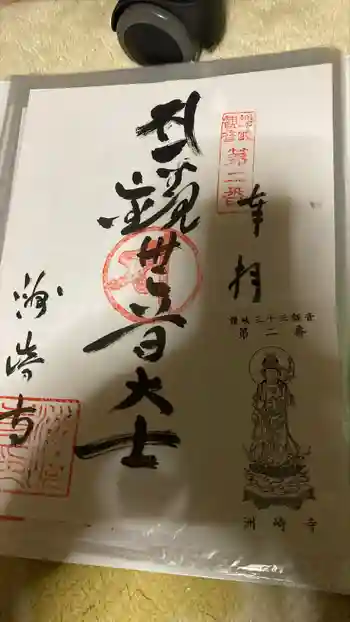 第二番
奉拝
聖観世音大士
洲崎寺
讃岐三十三観音
第二番
洲崎寺